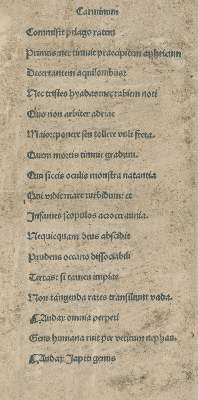 Carminum
Commisit pelago ratem
Primus nec timuit praecipitem aphricum
Decertantem aquilonibus:
Nec tristes hyadas nec rabiem noti
Quo non arbiter adriae
Maior: ponere seu tollere vult freta.
Quem mortis timuit gradum.
Qui siccis oculis monstra natantia
Qui vidit mare turbidum: et
Infames scopulos acroceraunia.
Nequicquam deus abscidit
Prudens oceano dissociabili
Terras: si tamen impiae
Non tangenda rates transiliunt vada.
Audax omnia perpeti
Gens humana ruit per vetitum nephas.
Audax Iapeti genus